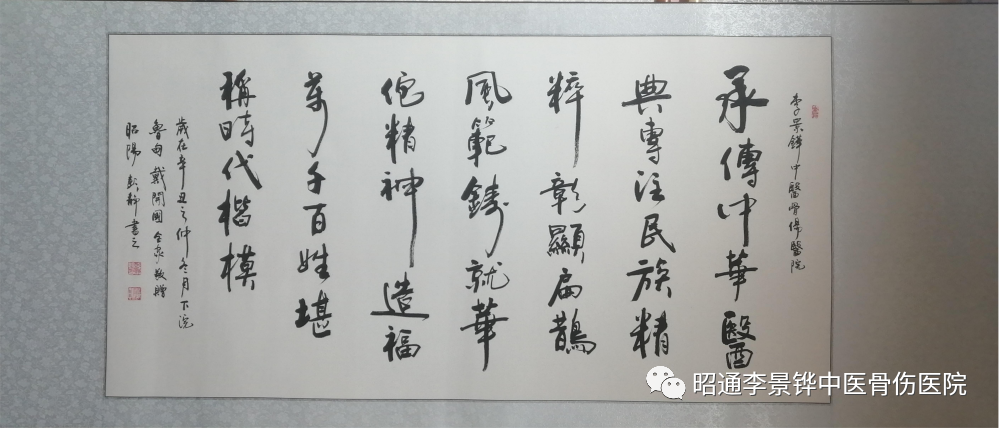 李景鏵中醫骨傷醫院
承傳中華醫
典專注民族精
粹彰顯扁鵲
風範鑄就華
佗精神造福
萬千百姓堪
稱時代楷模
歲在辛丑之仲冬月下浣
魯甸戴開國全家敬贈
昭陽書之
昭通李景铧中医骨伤医院